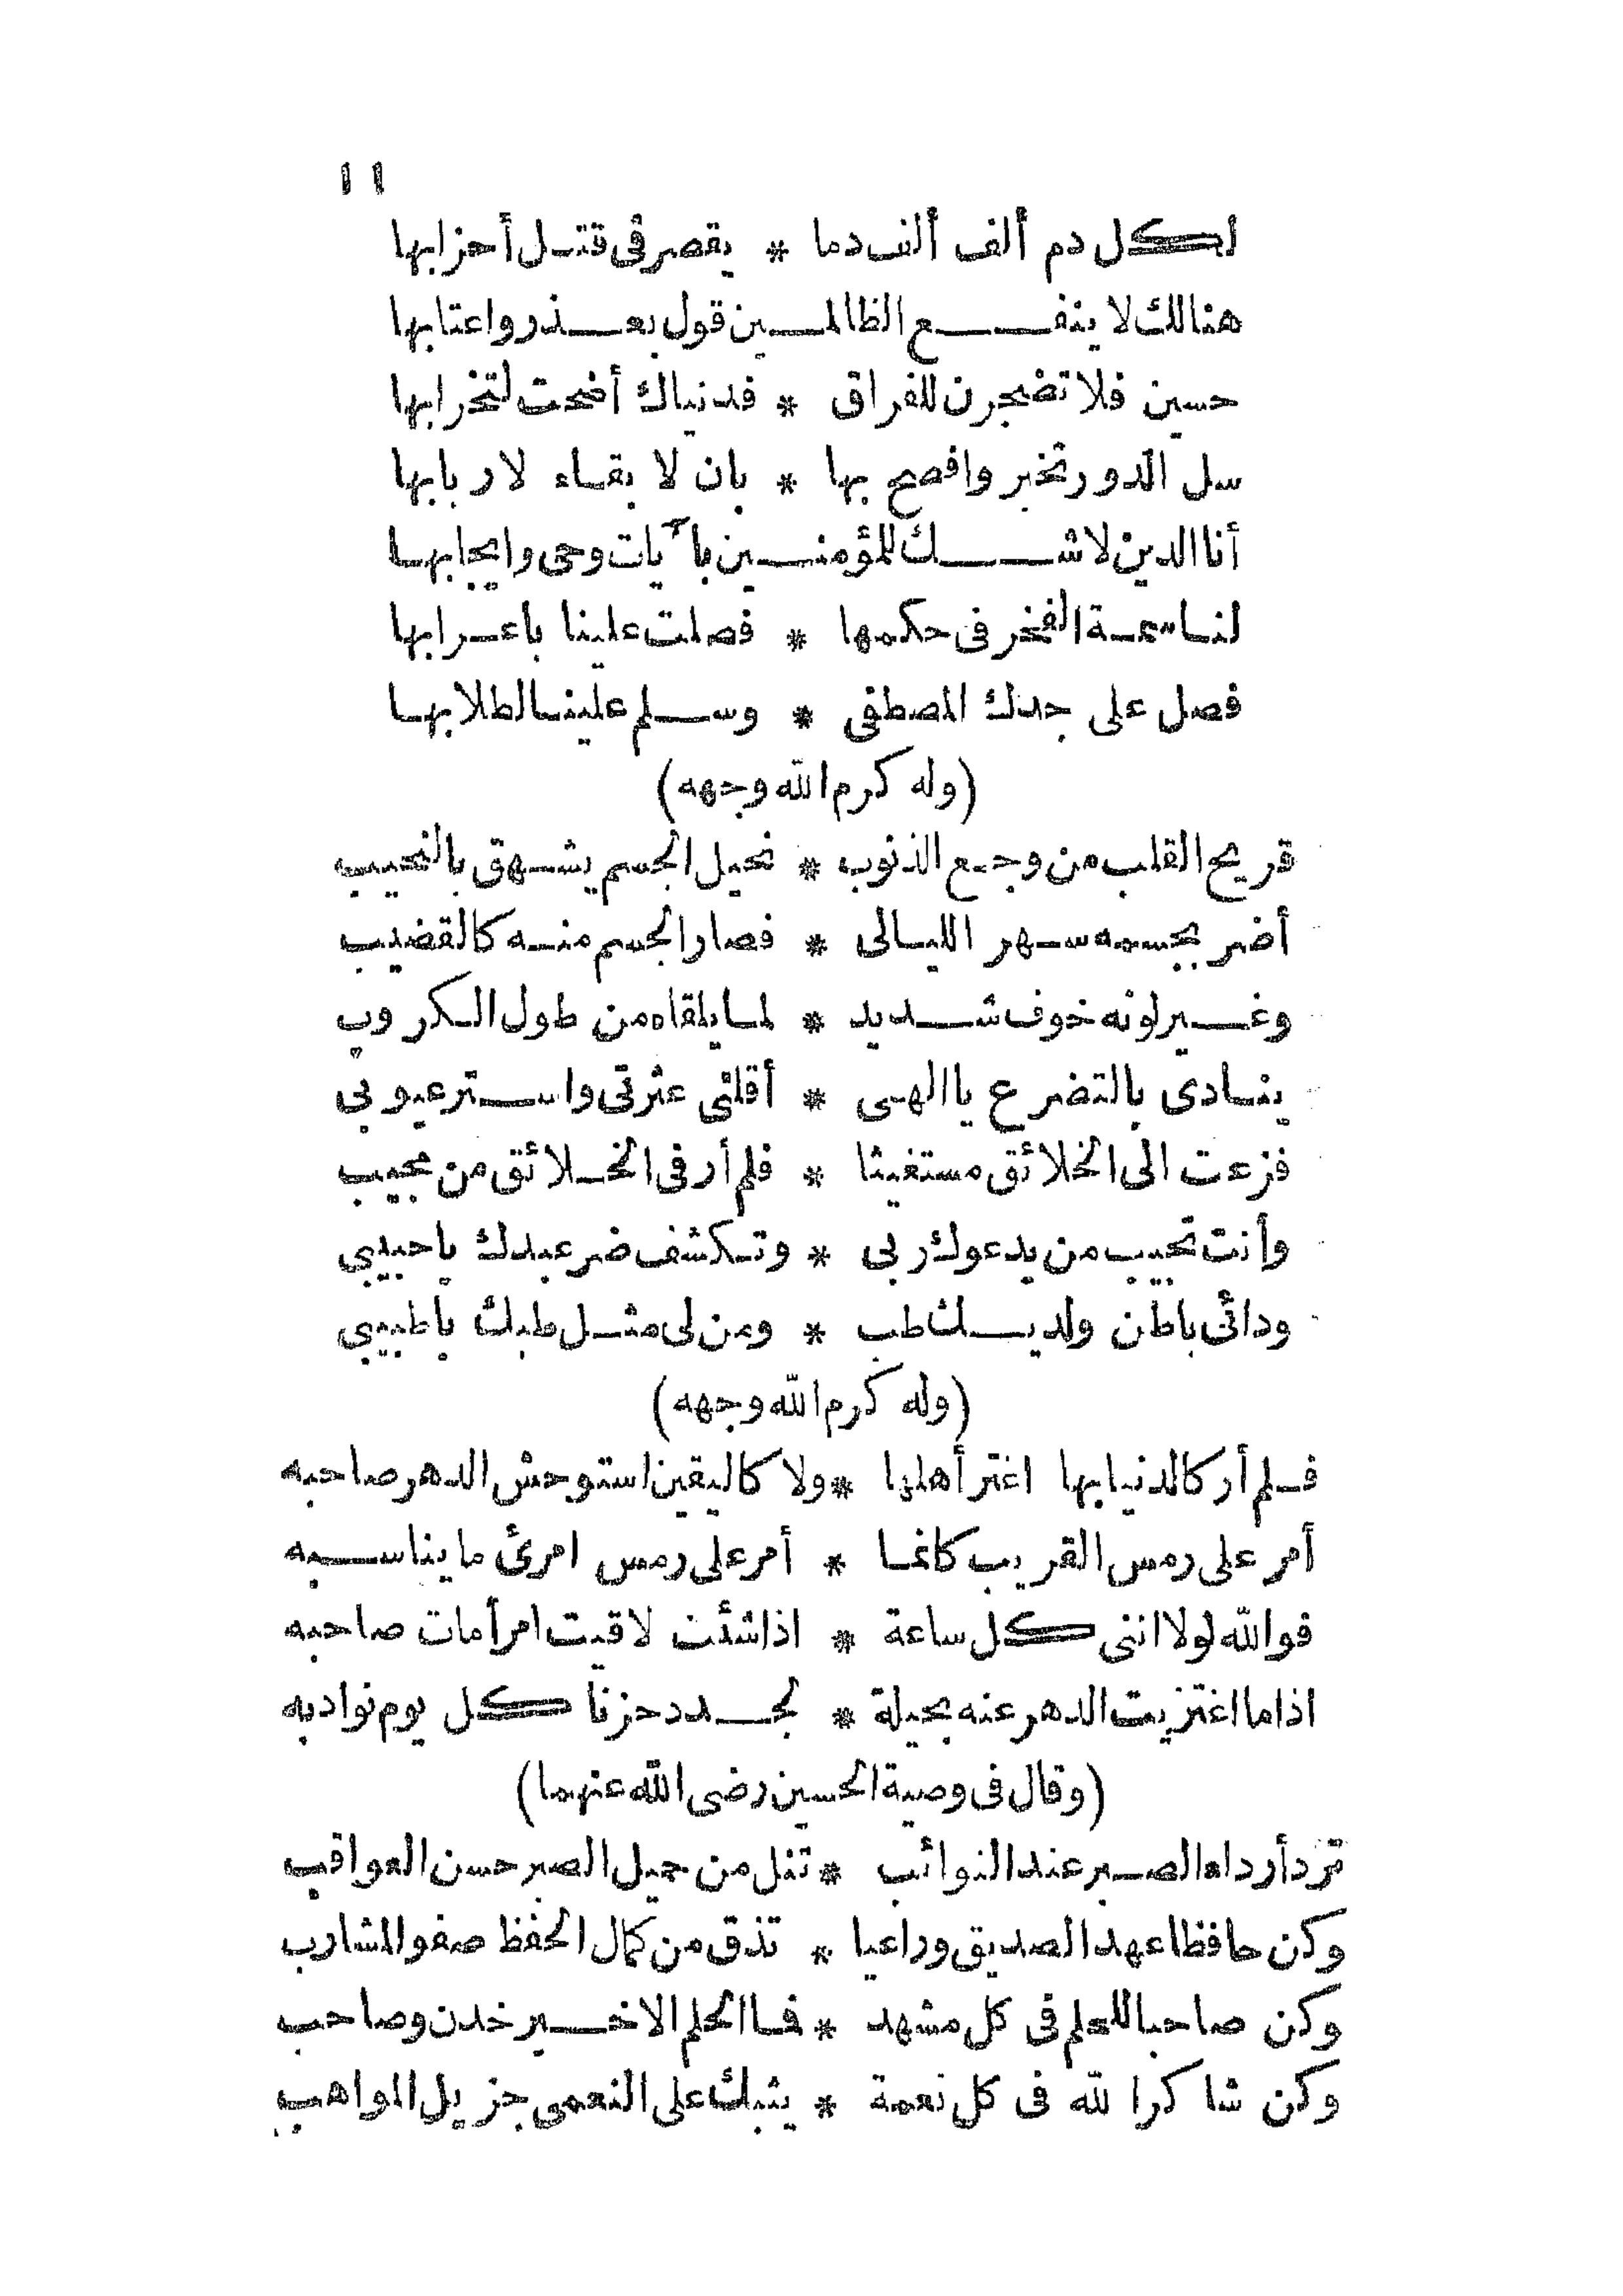 ١١
لكل دم ألف ألف دما * يقصر فى قتل أحزابها
هنالك لا ينفع الظالمين قول بعذر واعتابها
حسين فلا تضجرن للفراق * فدنياك أضحت لتخرابها
سل الدور تخبر وافصح بها * بان لا بقاء لاربابها
أنا الدين لا شك للمؤمنين بآيات وحى وايجابها
لنا سمة الفخر فى حكمها * فصلت علينا باعرابها
فصل على جدك المصطفى * وسلم علينا لطلابها
(وله كرم الله وجهه)
قريح القلب من وجع الذنوب * نحيل الجسم يشهق بالنحيب
أضر بجسمه سهر الليالى * فصار الجسم منه كالقضيب
وغير لونه خوف شديد * لما يلقاه من طول الكروب
ينادى بالتضرع يا الهى * أقلنى عثرتى واستر عيوبى
فزعت الى الخلائق مستغيثا * فلم أر فى الخلائق من مجيب
وأنت تجيب من يدعوك ربى * وتكشف ضر عبدك يا حبيبى
ودائى باطن ولديك طب * ومن لى مثل طبك يا طبيبى
(وله كرم الله وجهه)
فلم أر كالدنيا بها اغتر أهلها * ولا كاليقين استوحش الدهر صاحبه
أمر على رمس القريب كانما * أمر على رمس امرئ ما يناسبه
فوالله لولا اننى كل ساعة * اذا شئت لاقيت امرأ مات صاحبه
اذا ما اعتزيت الدهر عنه بحيلة * تجدد حزنا كل يوم نوادبه
(وقال فى وصية الحسين رضى الله عنهما)
ترد رداء الصبر عند النوائب * تنل من جميل الصبر حسن العواقب
وكن حافظا عهد الصديق وراعيا * تذق من كمال الحفظ صفو المشارب
وكن صاحبا للحلم فى كل مشهد * فما الحلم الا خير خدن وصاحب
وكن شاكرا لله فى كل نعمة * يثبك على النعمى جزيل المواهب